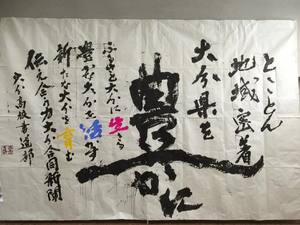 とことん
地域密着
大分県を
豊かに
ふるさと大分に生きる
豊かな大分を活かす
新たな大分を育む
伝える力大分合同新聞
大分高校書道部